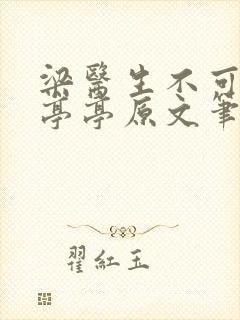 梁醫生不可
亭亭原文筆
翟紅玉